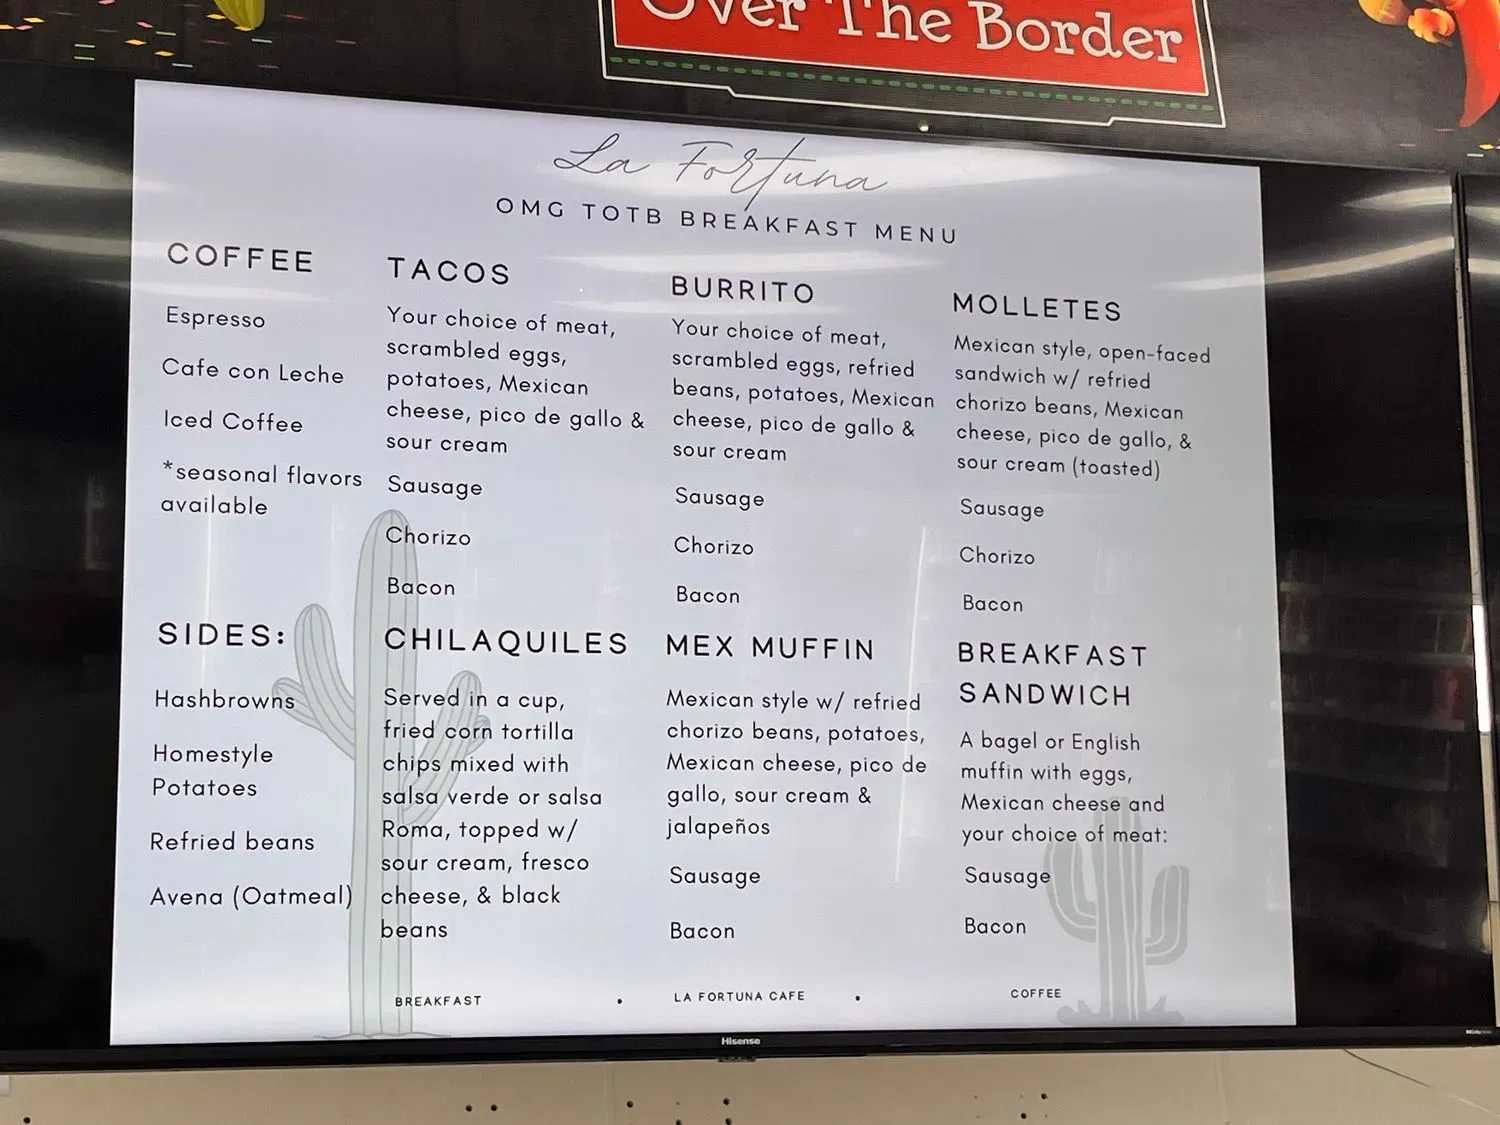 Over The Border
La Fortuna
OMG TOTB BREAKFAST MENU
COFFEE
Espresso
Cafe con Leche
Iced Coffee
*seasonal flavors
available
TACOS
Your choice of meat,
scrambled eggs,
potatoes, Mexican
cheese, pico de gallo &
sour cream
Sausage
Chorizo
Bacon
BURRITO
Your choice of meat,
scrambled eggs, refried
beans, potatoes, Mexican
cheese, pico de gallo &
sour cream
Sausage
Chorizo
Bacon
MOLLETES
Mexican style, open-faced
sandwich w/ refried
chorizo beans, Mexican
cheese, pico de gallo, &
sour cream (toasted)
Sausage
Chorizo
Bacon
SIDES:
Hashbrowns
Homestyle
Potatoes
Refried beans
Avena (Oatmeal)
CHILAQUILES
Served in a cup,
fried corn tortilla
chips mixed with
salsa verde or salsa
Roma, topped w/
sour cream, fresco
cheese, & black
beans
MEX MUFFIN
Mexican style w/ refried
chorizo beans, potatoes,
Mexican cheese, pico de
gallo, sour cream &
jalapeños
Sausage
Bacon
BREAKFAST
SANDWICH
A bagel or English
muffin with eggs,
Mexican cheese and
your choice of meat:
Sausage
Bacon
BREAKFAST • LA FORTUNA CAFE • COFFEE
Hisense